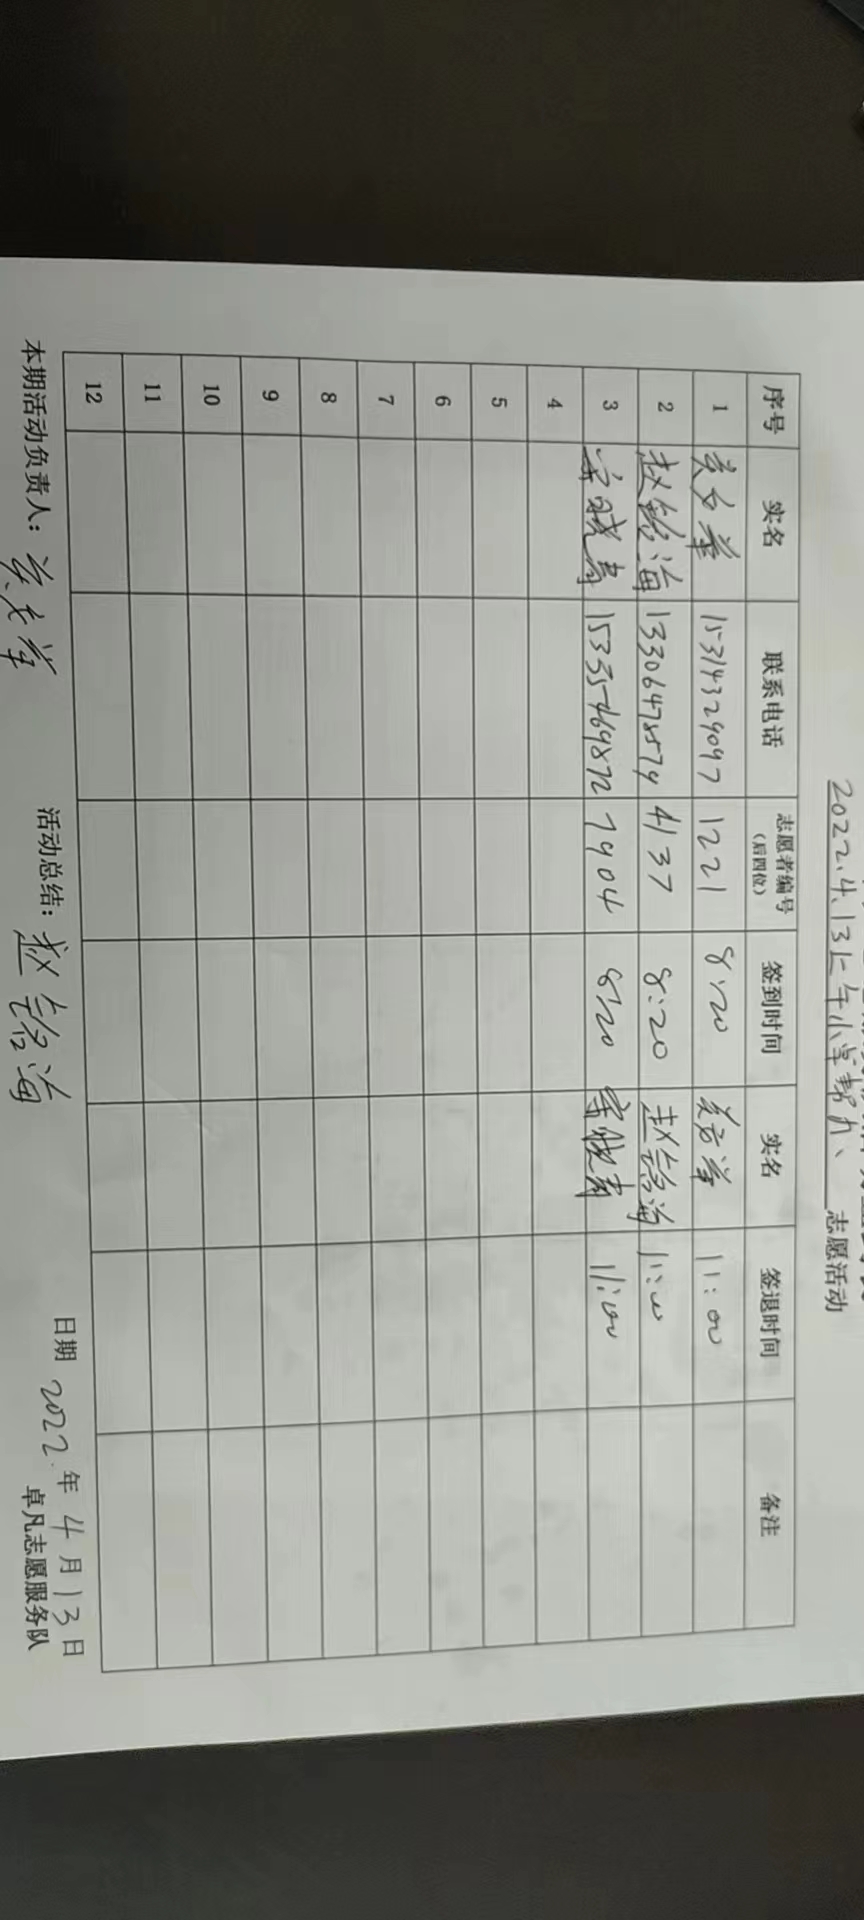 2022.4.13上午小学帮扶、志愿活动
序号 实名 联系电话 志愿者编号(后四位) 签到时间 实名 签退时间 备注
1 15314329097 1221 8:20 11:00
2 赵铭海 13306478579 4137 8:20 赵铭海 11:00
3 15335469872 7904 8:20 11:00
4
5
6
7
8
9
10
11
12
本期活动负责人: 活动总结:赵铭海 日期 2022.年4月13日
卓凡志愿服务队